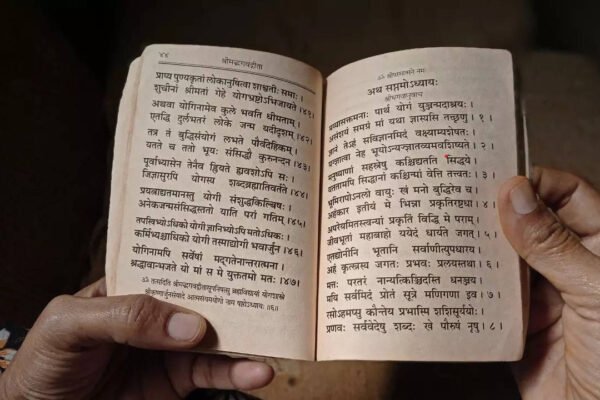 ४४
श्रीमद्भगवद्गीता
प्राप्य पुण्यकृतां लोकानुषित्वा शाश्वतीः समाः ।
शुचीनां श्रीमतां गेहे योगभ्रष्टोऽभिजायते ।४१।
अथवा योगिनामेव कुले भवति धीमताम् ।
एतद्धि दुर्लभतरं लोके जन्म यदीदृशम् ।४२।
तत्र तं बुद्धिसंयोगं लभते पौर्वदेहिकम् ।
यतते च ततो भूयः संसिद्धौ कुरुनन्दन ।४३।
पूर्वाभ्यासेन तेनैव ह्रियते ह्यवशोऽपि सः ।
जिज्ञासुरपि योगस्य शब्दब्रह्मातिवर्तते ।४४।
प्रयत्नाद्यतमानस्तु योगी संशुद्धकिल्बिषः ।
अनेकजन्मसंसिद्धस्ततो याति परां गतिम् ।४५।
तपस्विभ्योऽधिको योगी ज्ञानिभ्योऽपि मतोऽधिकः ।
कर्मिभ्यश्चाधिको योगी तस्माद्योगी भवार्जुन ।४६।
योगिनामपि सर्वेषां मद्गतेनान्तरात्मना ।
श्रद्धावान्भजते यो मां स मे युक्ततमो मतः ।४७।
ॐ तत्सदिति श्रीमद्भगवद्गीतासूपनिषत्सु ब्रह्मविद्यायां योगशास्त्रे
श्रीकृष्णार्जुनसंवादे आत्मसंयमयोगो नाम षष्ठोऽध्यायः ॥६॥
ॐ श्रीपरमात्मने नमः
अथ सप्तमोऽध्यायः
श्रीभगवानुवाच
मय्यासक्तमनाः पार्थ योगं युञ्जन्मदाश्रयः ।
असंशयं समग्रं मां यथा ज्ञास्यसि तच्छृणु ।१।
ज्ञानं तेऽहं सविज्ञानमिदं वक्ष्याम्यशेषतः ।
यज्ज्ञात्वा नेह भूयोऽन्यज्ज्ञातव्यमवशिष्यते ।२।
मनुष्याणां सहस्रेषु कश्चिद्यतति सिद्धये ।
यततामपि सिद्धानां कश्चिन्मां वेत्ति तत्त्वतः ।३।
भूमिरापोऽनलो वायुः खं मनो बुद्धिरेव च ।
अहंकार इतीयं मे भिन्ना प्रकृतिरष्टधा ।४।
अपरेयमितस्त्वन्यां प्रकृतिं विद्धि मे पराम् ।
जीवभूतां महाबाहो ययेदं धार्यते जगत् ।५।
एतद्योनीनि भूतानि सर्वाणीत्युपधारय ।
अहं कृत्स्नस्य जगतः प्रभवः प्रलयस्तथा ।६।
मत्तः परतरं नान्यत्किञ्चिदस्ति धनञ्जय ।
मयि सर्वमिदं प्रोतं सूत्रे मणिगणा इव ।७।
रसोऽहमप्सु कौन्तेय प्रभास्मि शशिसूर्ययोः ।
प्रणवः सर्ववेदेषु शब्दः खे पौरुषं नृषु ।८।